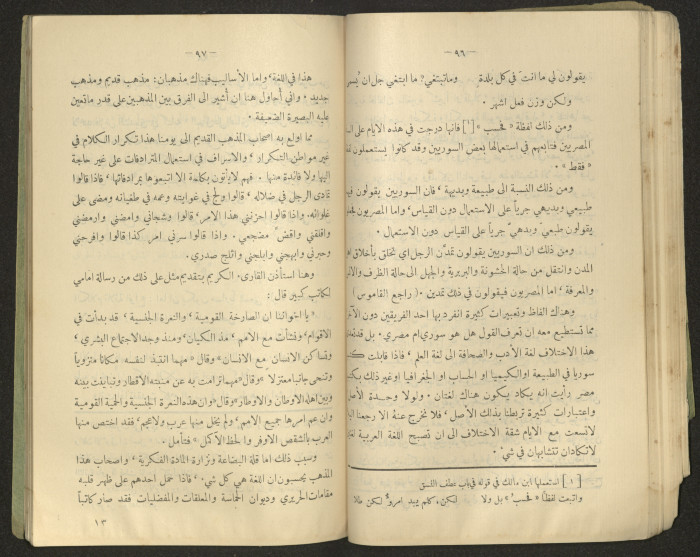 — ٩٦ —
يقولون لي ما انت في كل بلدة وما تبتغي? ما ابتغي جل ان
ولكن وزن فعل اشهر .
ومن ذلك لفظة « فحسب » [١] فانها درجت في هذه الايام على
المصريين فتابعهم في استعمالها بعض السوريين وقد كانوا يستعملون
« فقط » .
ومن ذلك النسبة الى طبيعة وبديهة ، فان السوريين يقولون
طبيعي وبديهي جرياً على الاستعمال دون القياس ، واما المصريون
يقولون طبعي وبدهي جرياً على القياس دون الاستعمال .
ومن ذلك ان السوريين يقولون تمدّن الرجل اي تخلق بأخلاق
المدن وانتقل من حالة الخشونة والبربرية والجهل الى حالة الظرف
والمعرفة ، اما المصريون فيقولون في ذلك تمدين . ( راجع القاموس )
وهناك الفاظ وتعبيرات كثيرة انفرد بها احد الفريقين دون
مما تستطيع معه ان تعرف القول هل هو سوري ام مصري . بل
هذا الاختلاف لغة الأدب والصحافة الى لغة العلم ، فاذا قابلت
سوريا في الطبيعة او الكيميا او الحساب او الجغرافيا او غير ذلك
مصر رأيت انه يكاد يكون هناك لغتان . ولولا وحدة الأصل
واعتبارات كثيرة تربطنا بذلك الأصل ، فلا نخرج عنه الا رجعنا
لاتسعت مع الايام شقة الاختلاف الى ان تصبح اللغة العربية
لا تكادان تتشابهان في شيء .
[١] استعملها ابن مالك في قوله في باب عطف النسق
واتبعت لفظاً « فحسب » بل ولا لكن ، كلم يبد امرؤ لكن طلا
— ٩٧ —
هذا في اللغة ، واما الأساليب فهناك مذهبان : مذهب قديم ومذهب
جديد . واني أحاول هنا ان أشير الى الفرق بين المذهبين على قدر ما تعين
عليه البصيرة الضعيفة .
مما اولع به اصحاب المذهب القديم الى يومنا هذا تكرار الكلام في
غير مواطن التكرار ، والاسراف في استعمال المترادفات على غير حاجة
اليها ولا فائدة منها . فهم لا يأتون بكلمة الا اتبعوها بمرادفاتها ، فاذا قالوا
تمادى الرجل في ضلاله ، قالوا ولج في غوايته وعمه في طغيانه ومضى على
غلوائه . واذا قالوا احزنني هذا الامر ، قالوا وشجاني وامضني وارمضني
واقلقني واقض مضجعي . واذا قالوا سرني امر كذا قالوا وافرحني
وحبرني وابهجني وابلجني واثلج صدري .
وهنا استأذن القارىء الكريم بتقديم مثل على ذلك من رسالة امامي
لكاتب كبير قال :
« يا اخواننا ان الصارخة القومية ، والنعرة الجنسية ، قد بدأت في
الاقوام ، وفشأت مع الامم ، منذ الكيان ، ومنذ وجد الاجتماع البشري ،
وتساكن الانسان مع الانسان » وقال « مهما انتبذ لنفسه مكانا منزوياً
وتنحى جانبا معتزلا » وقال « مهما ترامت به عن منبته الاقطار وتباينت بينه
وبين اهله الاوطان والاوطار » وقال « وان هذه النعرة الجنسية والحمية القومية
وان عم امرها جميع الامم ، ولم يخل منها عرب ولا عجم ، فقد اختص منها
العرب بالشقص الاوفر والحظ الاكمل » فتأمل .
وسبب ذلك اما قلة البضاعة ونزارة المادة الفكرية ، واصحاب هذا
المذهب يحسبون ان اللغة هي كل شيء . فاذا حمل احدهم على ظهر قلبه
مقامات الحريري وديوان الحماسة والمعلقات والمفضليات فقد صار كاتباً
١٣